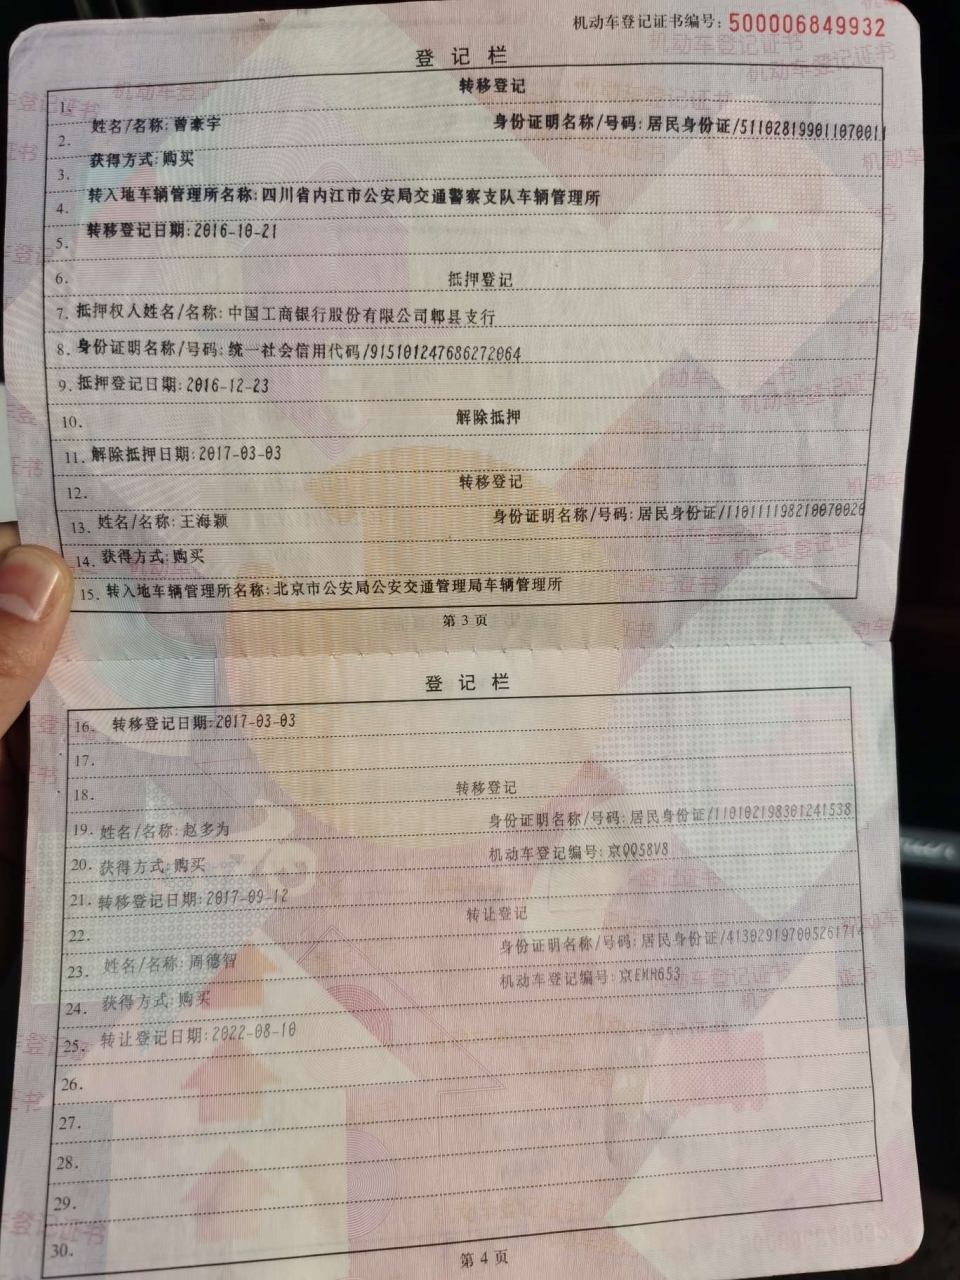 机动车登记证书编号: 500006849932
登记栏
转移登记
1.
姓名/名称: 曾豪宇 身份证明名称/号码: 居民身份证/511028199011070011
2.
获得方式: 购买
3.
转入地车辆管理所名称: 四川省内江市公安局交通警察支队车辆管理所
4.
转移登记日期: 2016-10-21
5.
6. 抵押登记
7. 抵押权人姓名/名称: 中国工商银行股份有限公司郫县支行
8. 身份证明名称/号码: 统一社会信用代码/915101247686272064
9. 抵押登记日期: 2016-12-23
10. 解除抵押
11. 解除抵押日期: 2017-03-03
12. 转移登记
13. 姓名/名称: 王海颖 身份证明名称/号码: 居民身份证/110111198210070026
14. 获得方式: 购买
15. 转入地车辆管理所名称: 北京市公安局公安交通管理局车辆管理所
第 3 页
登记栏
16. 转移登记日期: 2017-03-03
17.
18. 转移登记
19. 姓名/名称: 赵多为 身份证明名称/号码: 居民身份证/110102198301241538
20. 获得方式: 购买 机动车登记编号: 京QQ58V8
21. 转移登记日期: 2017-09-12
22. 转让登记
23. 姓名/名称: 周德智 身份证明名称/号码: 居民身份证/413029197005261714
24. 获得方式: 购买 机动车登记编号: 京EMH653
25. 转让登记日期: 2022-08-10
26.
27.
28.
29.
30.
第 4 页